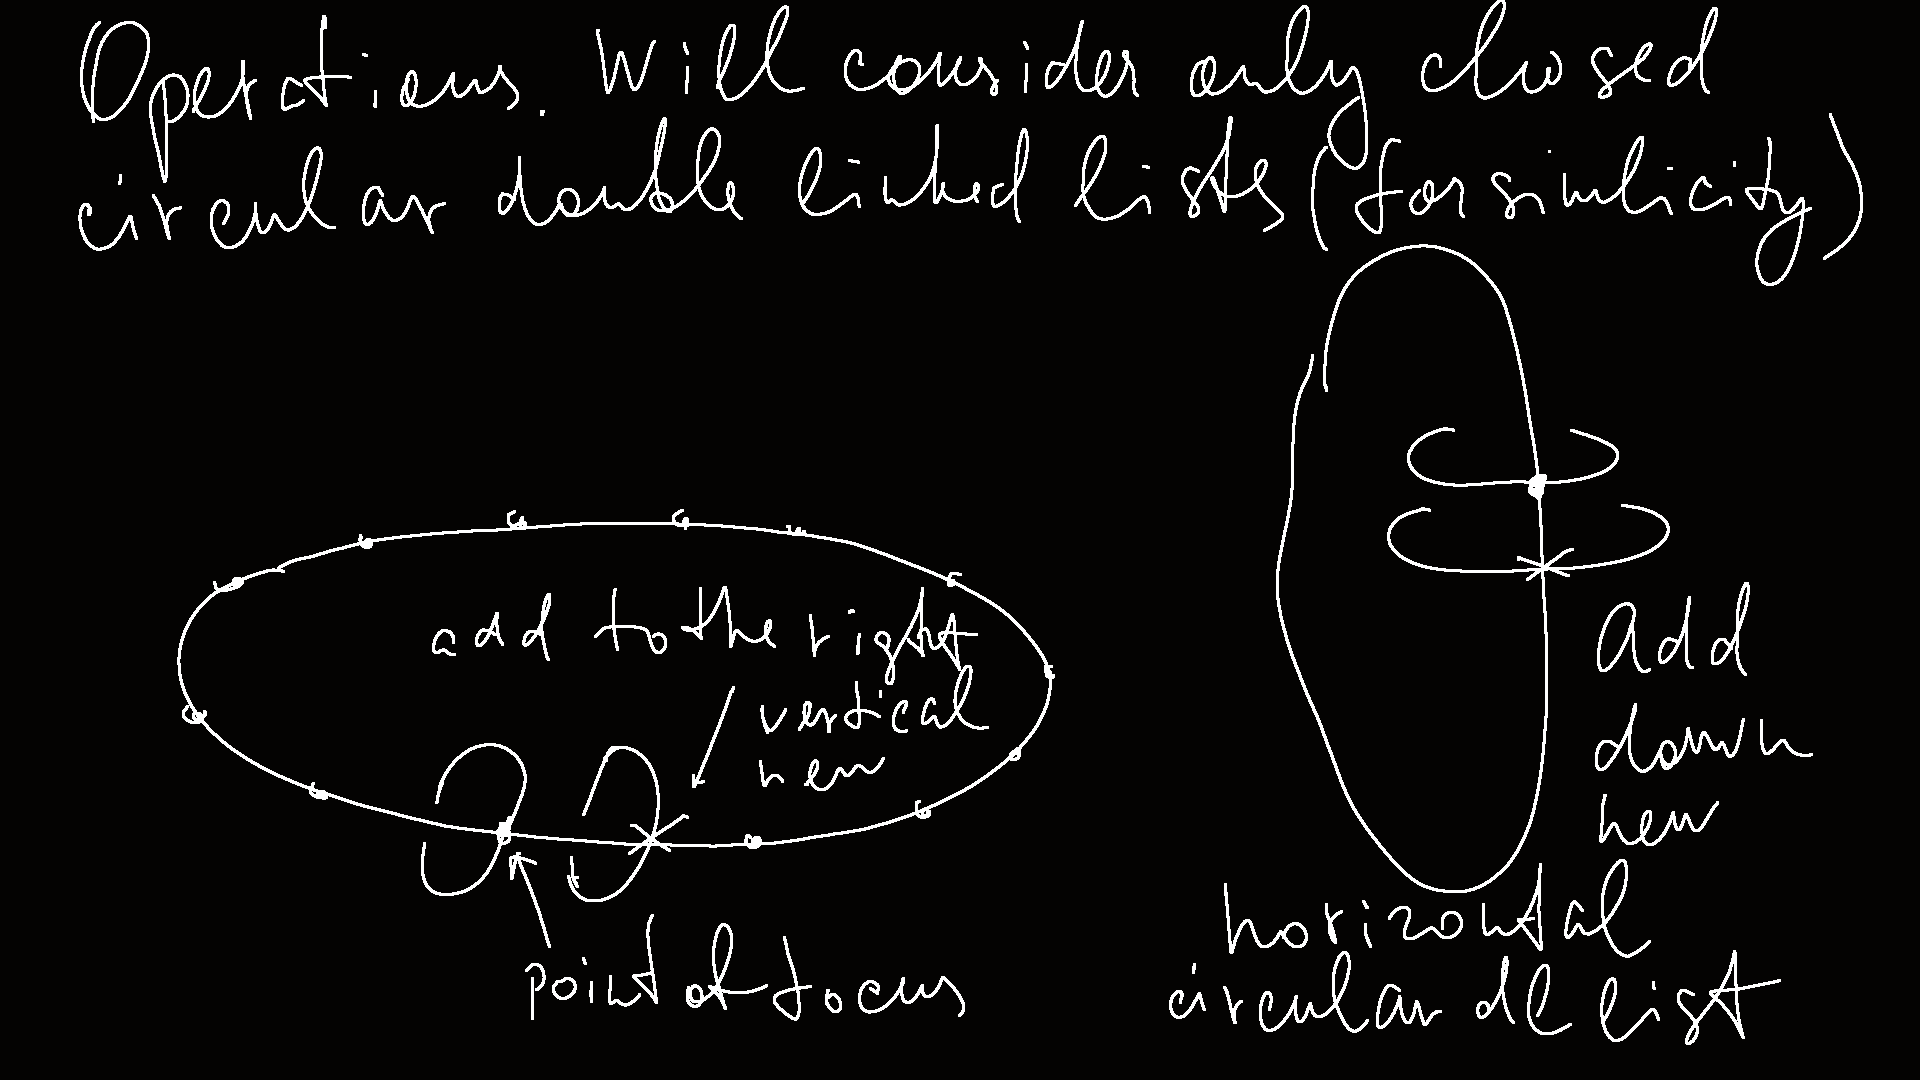 Operations. Will consider only closed
circular double linked lists (for simlicity)
add to the right
vertical
new
point of focus
Add
down
new
horizontal
circular dl list